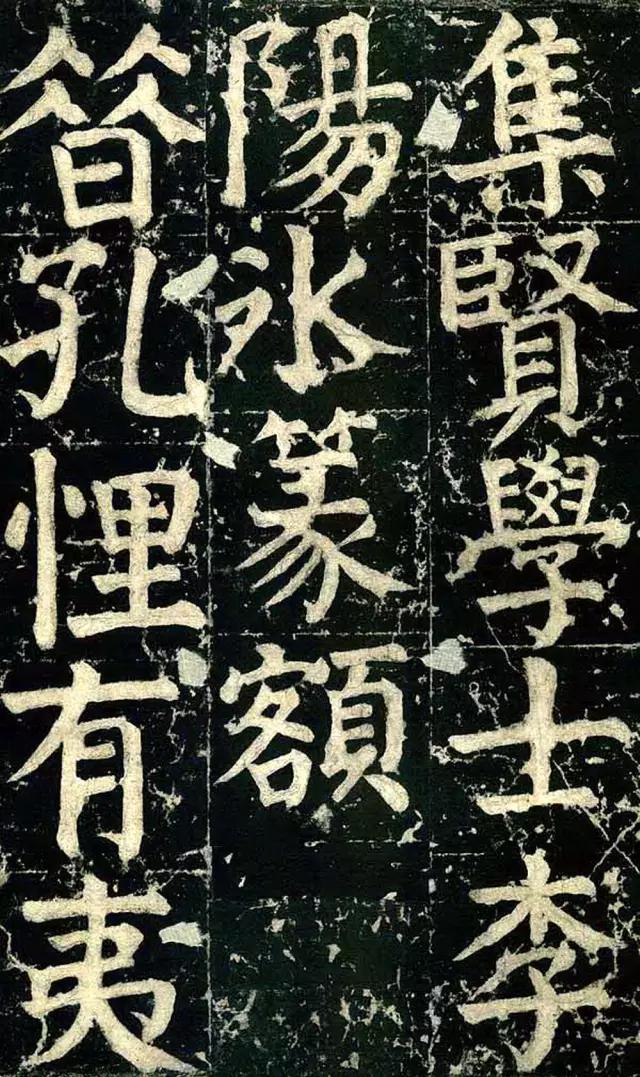 集賢學士李
陽冰篆額
昝孔悝有夷